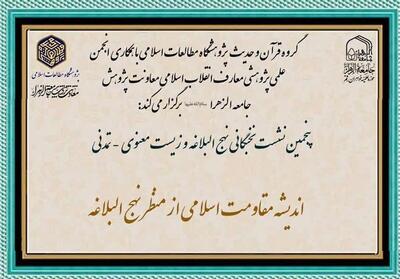 گروه قرآن و حدیث پژوهشگاه مطالعات اسلامی با همکاری انجمن
علمی پژوهشی معارف انقلاب اسلامی معاونت پژوهش
جامعه الزهرا سلام‌الله‌علیها برگزار می‌کند:
پنجمین نشست نخبگانی نهج البلاغه و زیست معنوی - تمدنی
اندیشه مقاومت اسلامی از منظر نهج البلاغه
پژوهشگاه مطالعات اسلامی
جامعة الزهرا